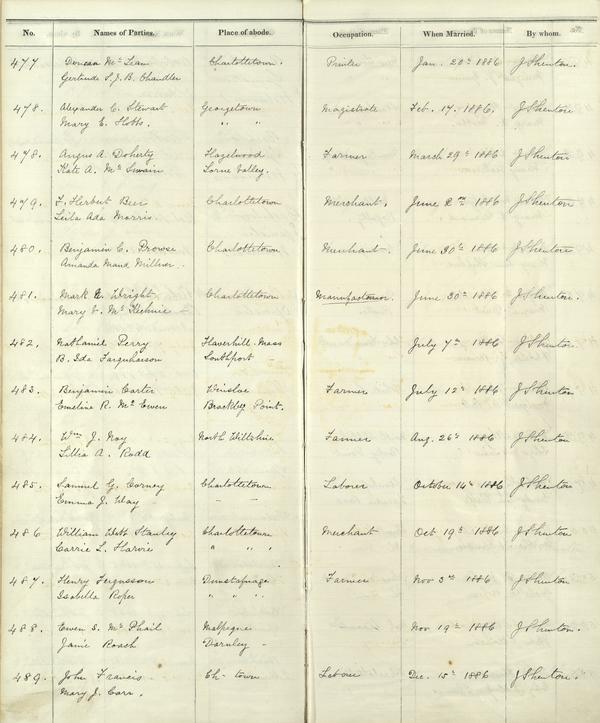 No. Names of Parties. Place of abode. Occupation. When Married. By whom.
477 Duncan Mc Lean Charlottetown. Printer Jan. 20th 1886 J Shenton.
Gertrude S. J. B. Chandler
478. Alexander C. Stewart Georgetown Magistrate Feb. 17. 1886. J Shenton
Mary E. Hobbs. " "
478. Angus A. Doherty Hazelwood Farmer March 29th 1886 J Shenton
Kate A. Mc Swain Lorne Valley.
479. F. Herbert Beer Charlottetown Merchant. June 2nd 1886 J Shenton
Leila Ada Morris.
480. Benjamin C. Prowse Charlottetown Merchant. June 30th 1886 J Shenton
Amanda Maud Millner.
481. Mark Wright Charlottetown Manufacturer. June 30th 1886 J Shenton.
Mary Mc Kechnie -
482. Nathaniel Perry Haverhill. Mass July 7th 1886 J Shenton.
B. Ida Farquharson Southport -
483. Benjamin Carter Winsloe Farmer July 12th 1886 J Shenton
Emeline R. Mc Ewen Brackley Point.
484. Wm J. Roy North Wiltshire Farmer Aug. 26th 1886 J Shenton
Lillia A. Rodd
485. Samuel G. Corney Charlottetown Laborer October 14th 1886 J Shenton.
Emma J. Way - -
486 William Webb Stanley Charlottetown Merchant Oct 19th 1886 J Shenton
Carrie L. Harvie " " "
487. Henry Fergusson Dunstaffnage Farmer Nov 3rd 1886 J Shenton
Isabella Roper " " "
488. Ewen S. Mc Phail Malpeque - Nov 19th 1886 J Shenton.
Janie Roach Darnley -
489. John Francis Ch- town Laborer Dec. 15th 1886 J Shenton.
Mary J. Carr.